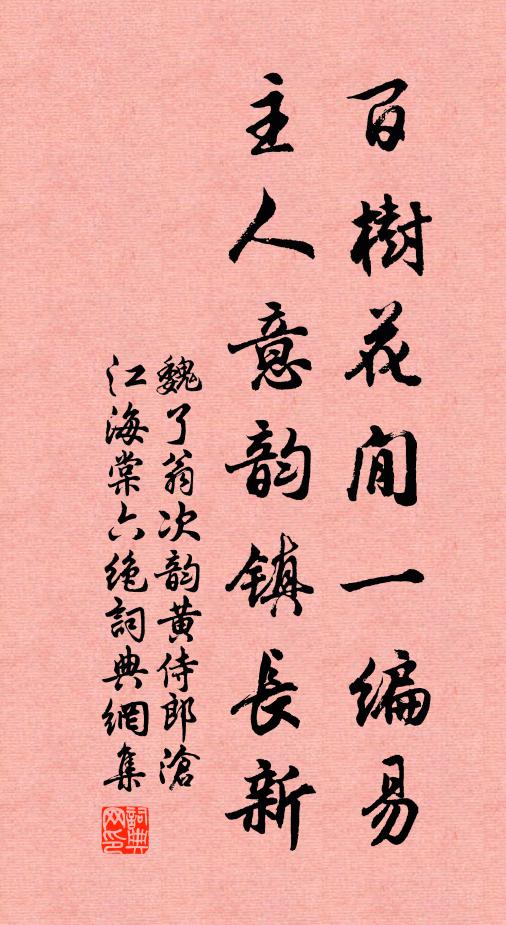 百樹花間一編易
主人意韵鎮長新
魏了翁次韵黄侍郎滄
江海棠六絶詞典網集
詞典
网印